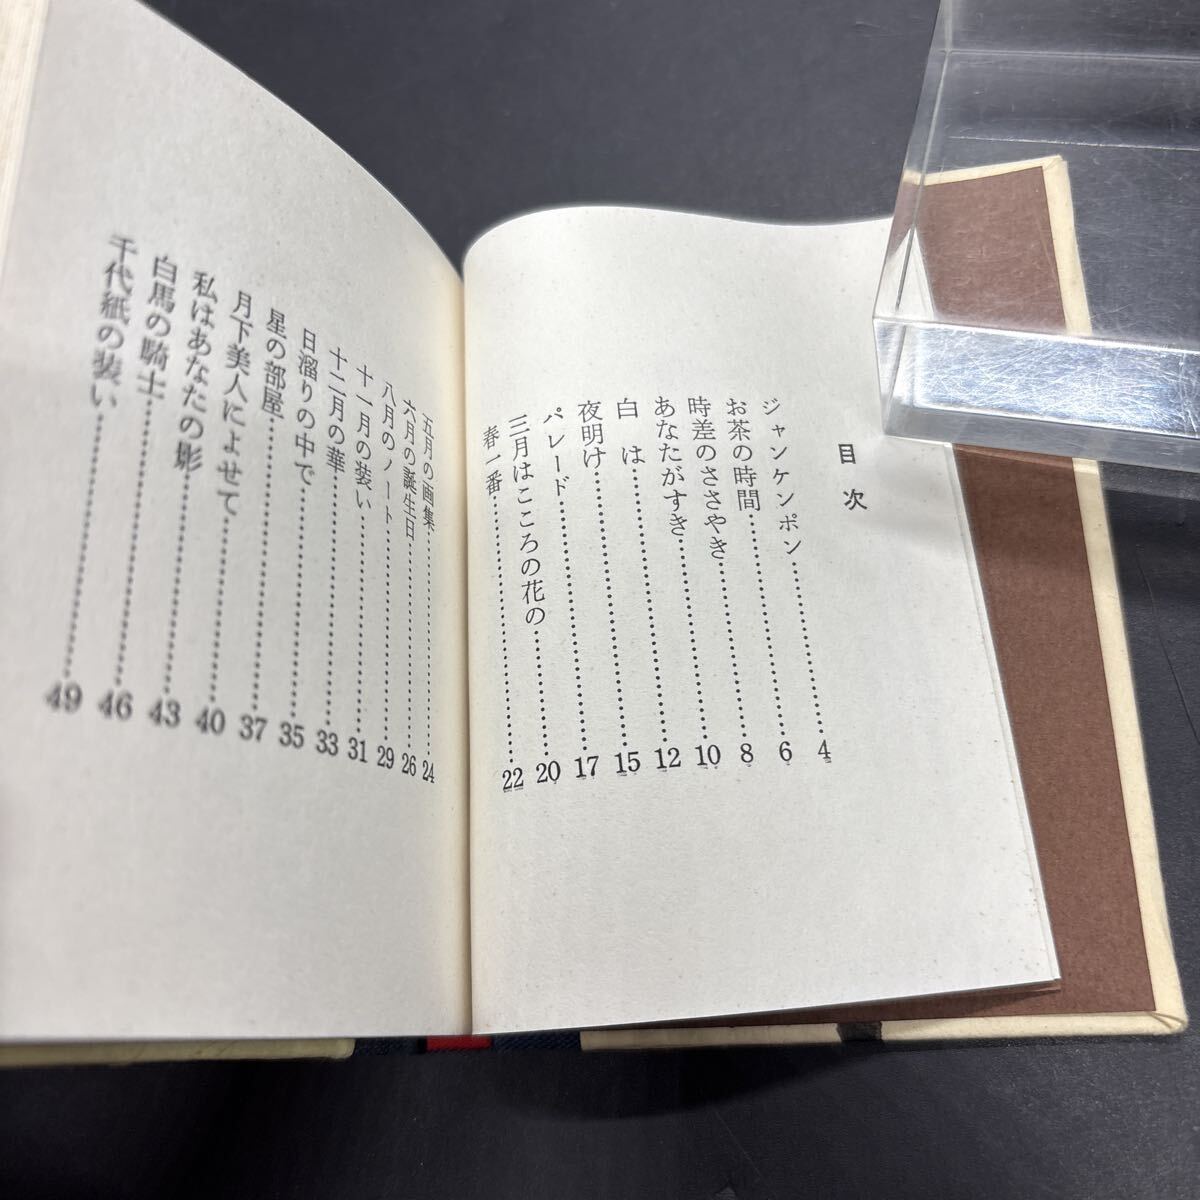 目次
ジャンケンポン……4
お茶の時間……6
時差のささやき……8
あなたがすき……10
白は……12
夜明け……15
パレード……17
三月はこころの花の……20
春一番……22
五月の画集……24
六月の誕生日……26
八月のノート……29
十一月の装い……31
十二月の華……33
日溜りの中で……35
星の部屋……37
月下美人によせて……40
私はあなたの影……43
白馬の騎士……46
千代紙の装い……49